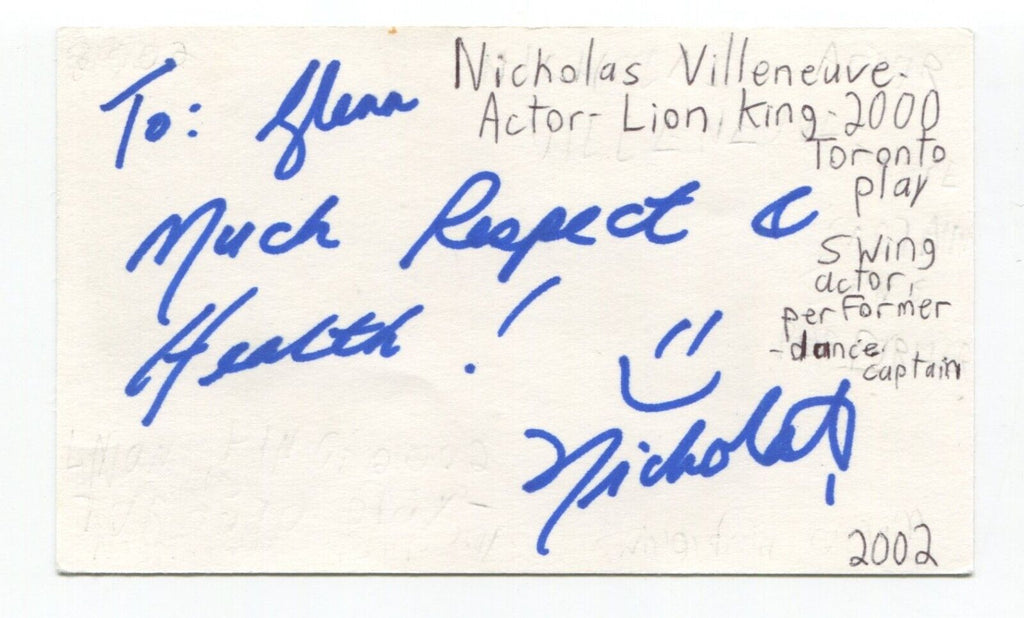 To: Glenn
Much Respect &
Health!
Nicholas!
Nicholas Villeneuve-
Actor- Lion King-2000
Toronto
play
Swing
actor,
performer
-dance
captain
2002